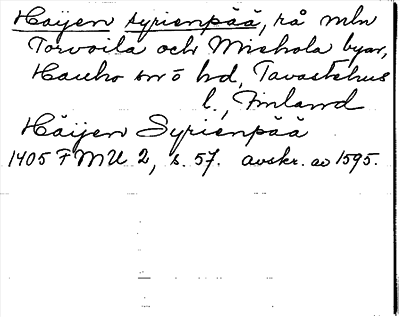 Häijen syrienpää, rå mln
Torvoila och Miehola byar,
Hauho sn o hd, Tavastehus
l., Finland
Häijen Syrienpää
1405 FMU 2, s. 57. avskr. av 1595.